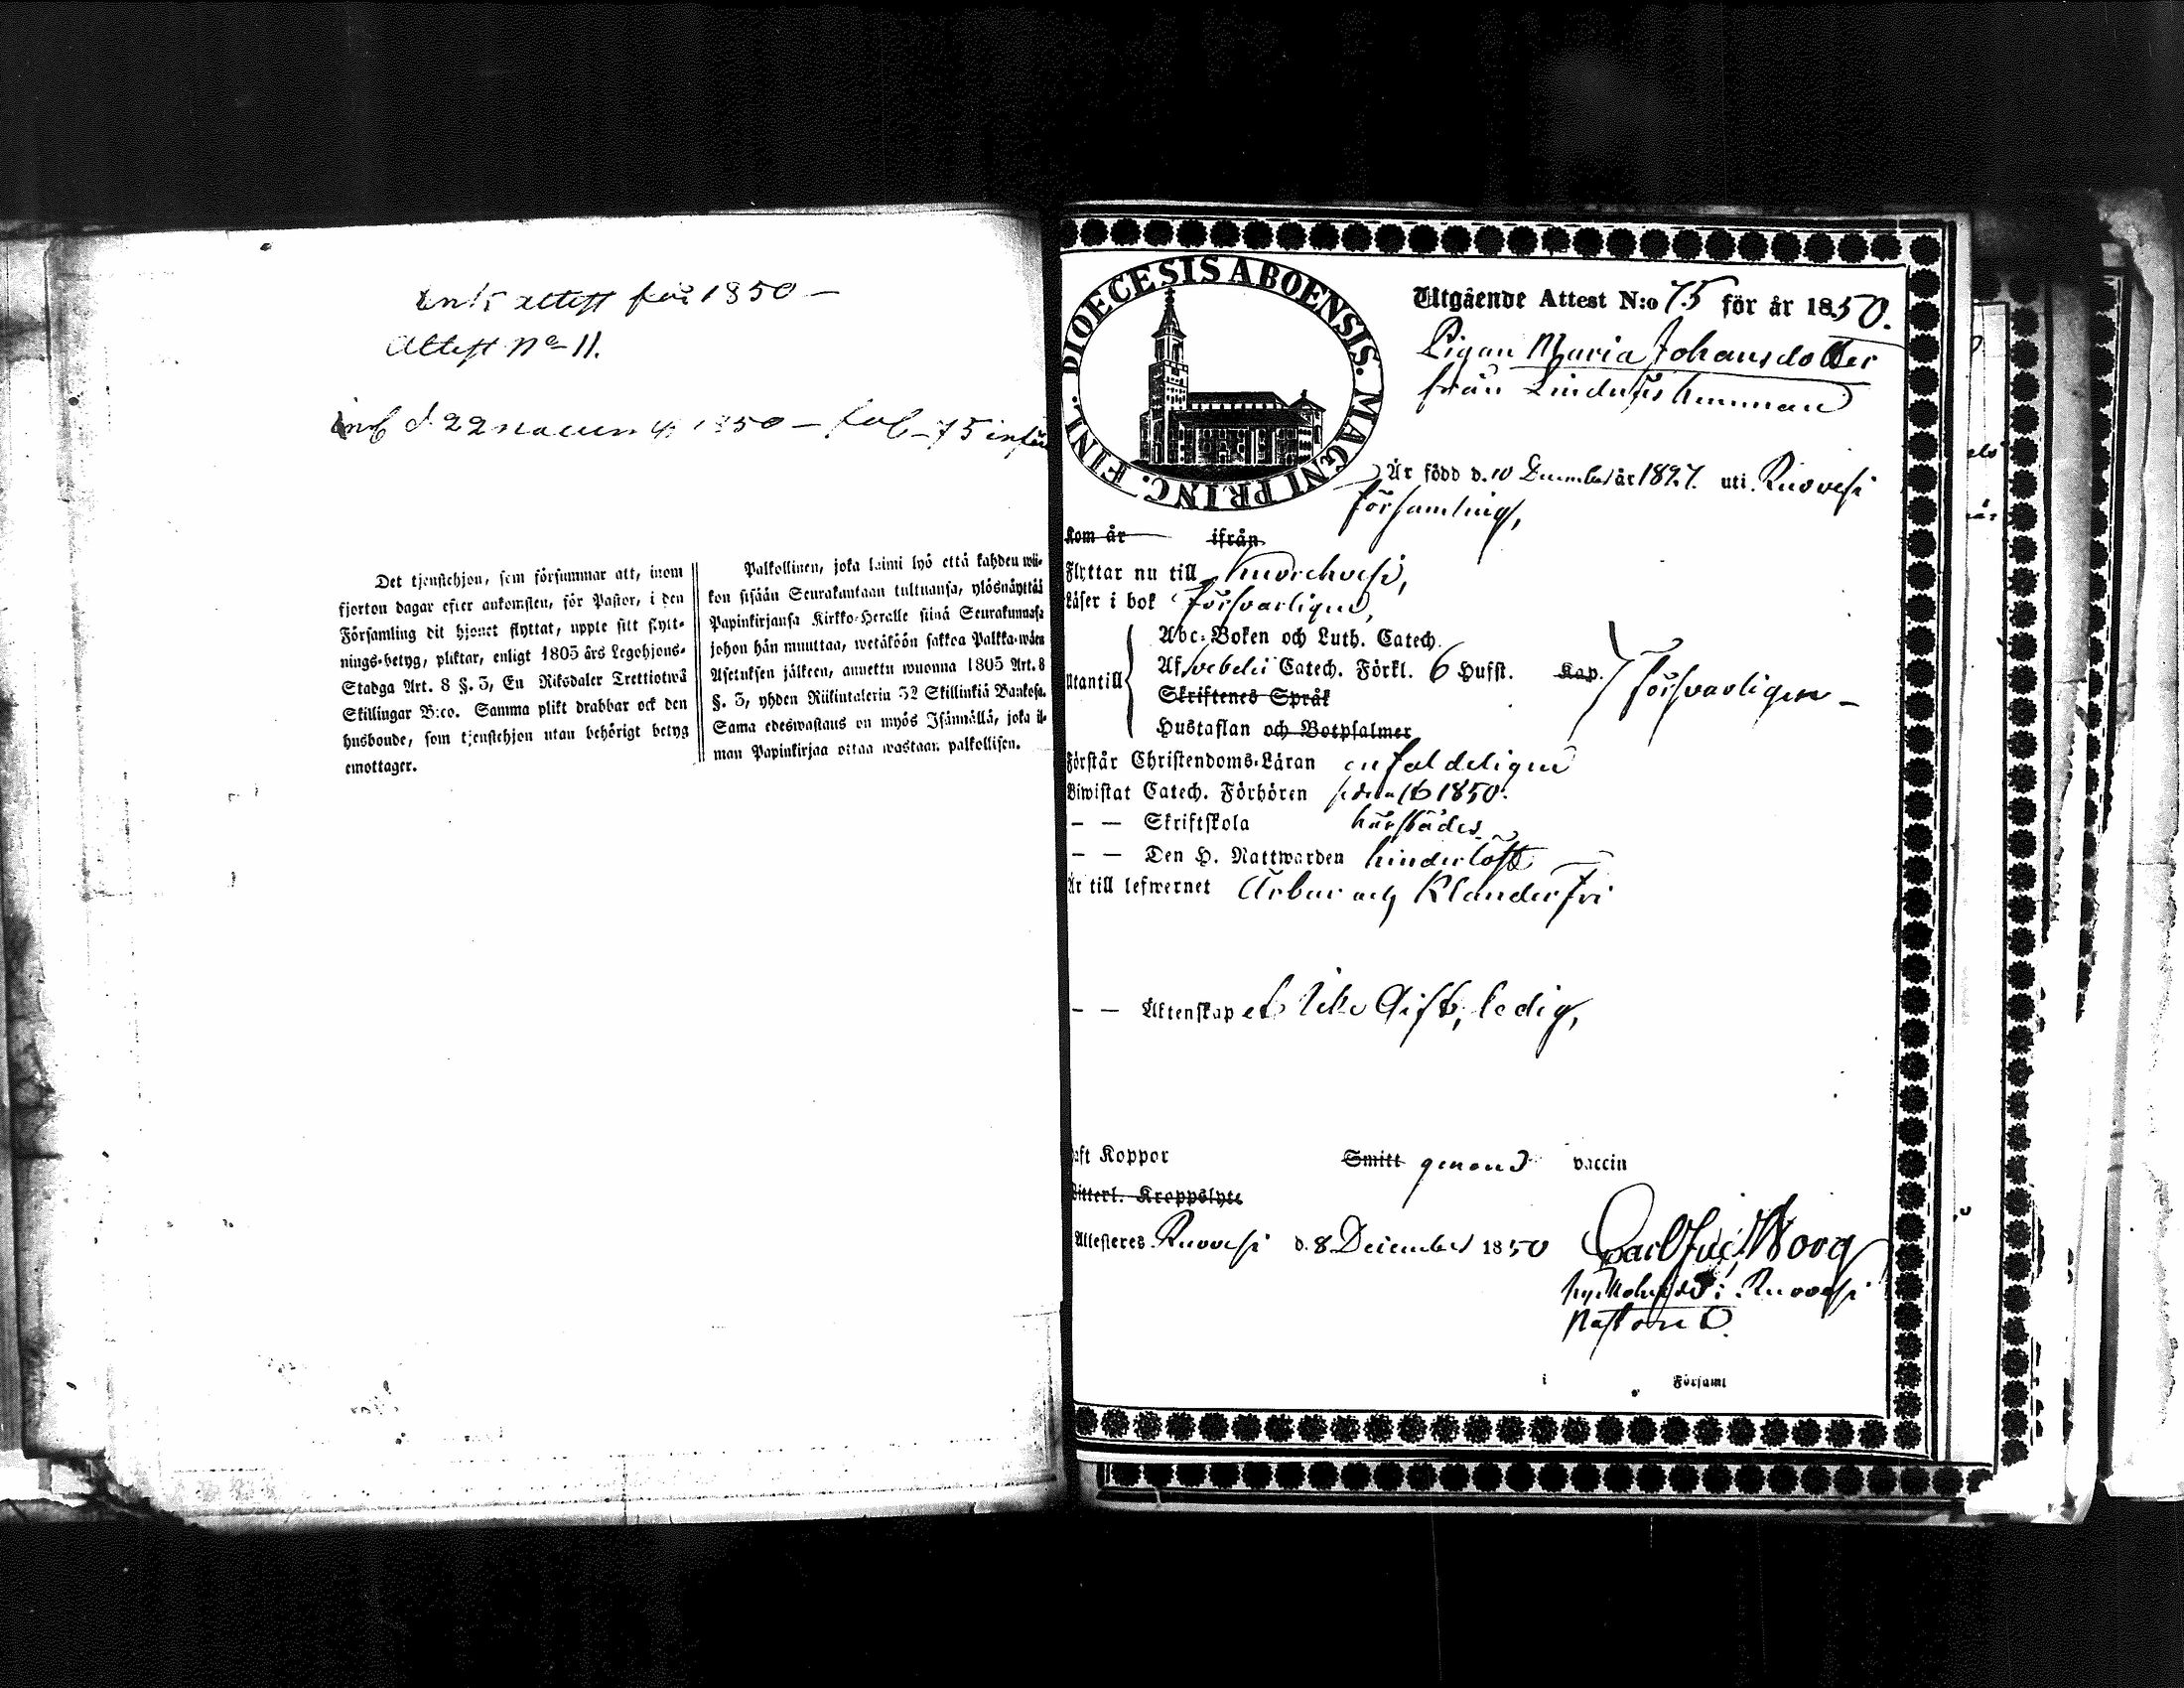 attest för 1850 —
Attest No 11.
d 22 1850 — fol — 75
Det tjenstehjon, som försummar att, inom
fjorton dagar efter ankomsten, för Pastor, i den
Församling dit hjonet flyttat, uppte sitt flytt-
nings-betyg, pliktar, enligt 1805 års Legohjons-
Stadga Art. 8 §. 3, En Riksdaler Trettiotwå
Skillingar B:co. Samma plikt drabbar ock den
husbonde, som tjenstehjon utan behörigt betyg
emottager.
Palkollinen, joka laimi lyö että kahden wii-
kon sisään Seurakuntaan tultuansa, ylösnäyttää
Papinkirjansa Kirkko-Herralle siinä Seurakunnasa
johon hän muuttaa, wetäköön sakkoa Palkka-wäen
Asetuksen jälkeen, annettu wuonna 1805 Art. 8
§. 3, yhden Riikintalerin 32 Skillinkiä Bankosa.
Sama edeswastaus on myös Isännällä, joka il-
man Papinkirjaa ottaa wastaan palkollisen.
DIOECESIS ABOENSIS. MAGNI PRINC. FINL.
Utgående Attest N:o 75 för år 1850.
Pigan Maria Johansdotter
från hemman
Är född d. 10 December år 1827. uti Ruovesi
församling,
Kom år ifrån
Flyttar nu till Kuorehvesi,
Läser i bok försvarligen,
Utantill
Abc-Boken och Luth. Catech.
Af Svebelii Catech. Förkl. 6 Hufst. Kap.
försvarligen —
Skriftenes Språk
Hustaflan och Botpsalmer
Förstår Christendoms-Läran enfaldeligen
Biwistat Catech. Förhören 1850.
— — Skriftskola härstädes
— — Den H. Nattwarden hinderlöst
Är till lefwernet Ärbar och Klanderfri
— — Äktenskapet Icke Gift, ledig,
Haft Koppor Smitt genom vaccin
Witterl. Kroppslyte
Attesteres Ruovesi d. 8 December 1850
Carl Woog
i Ruovesi
Pastor
i Församl